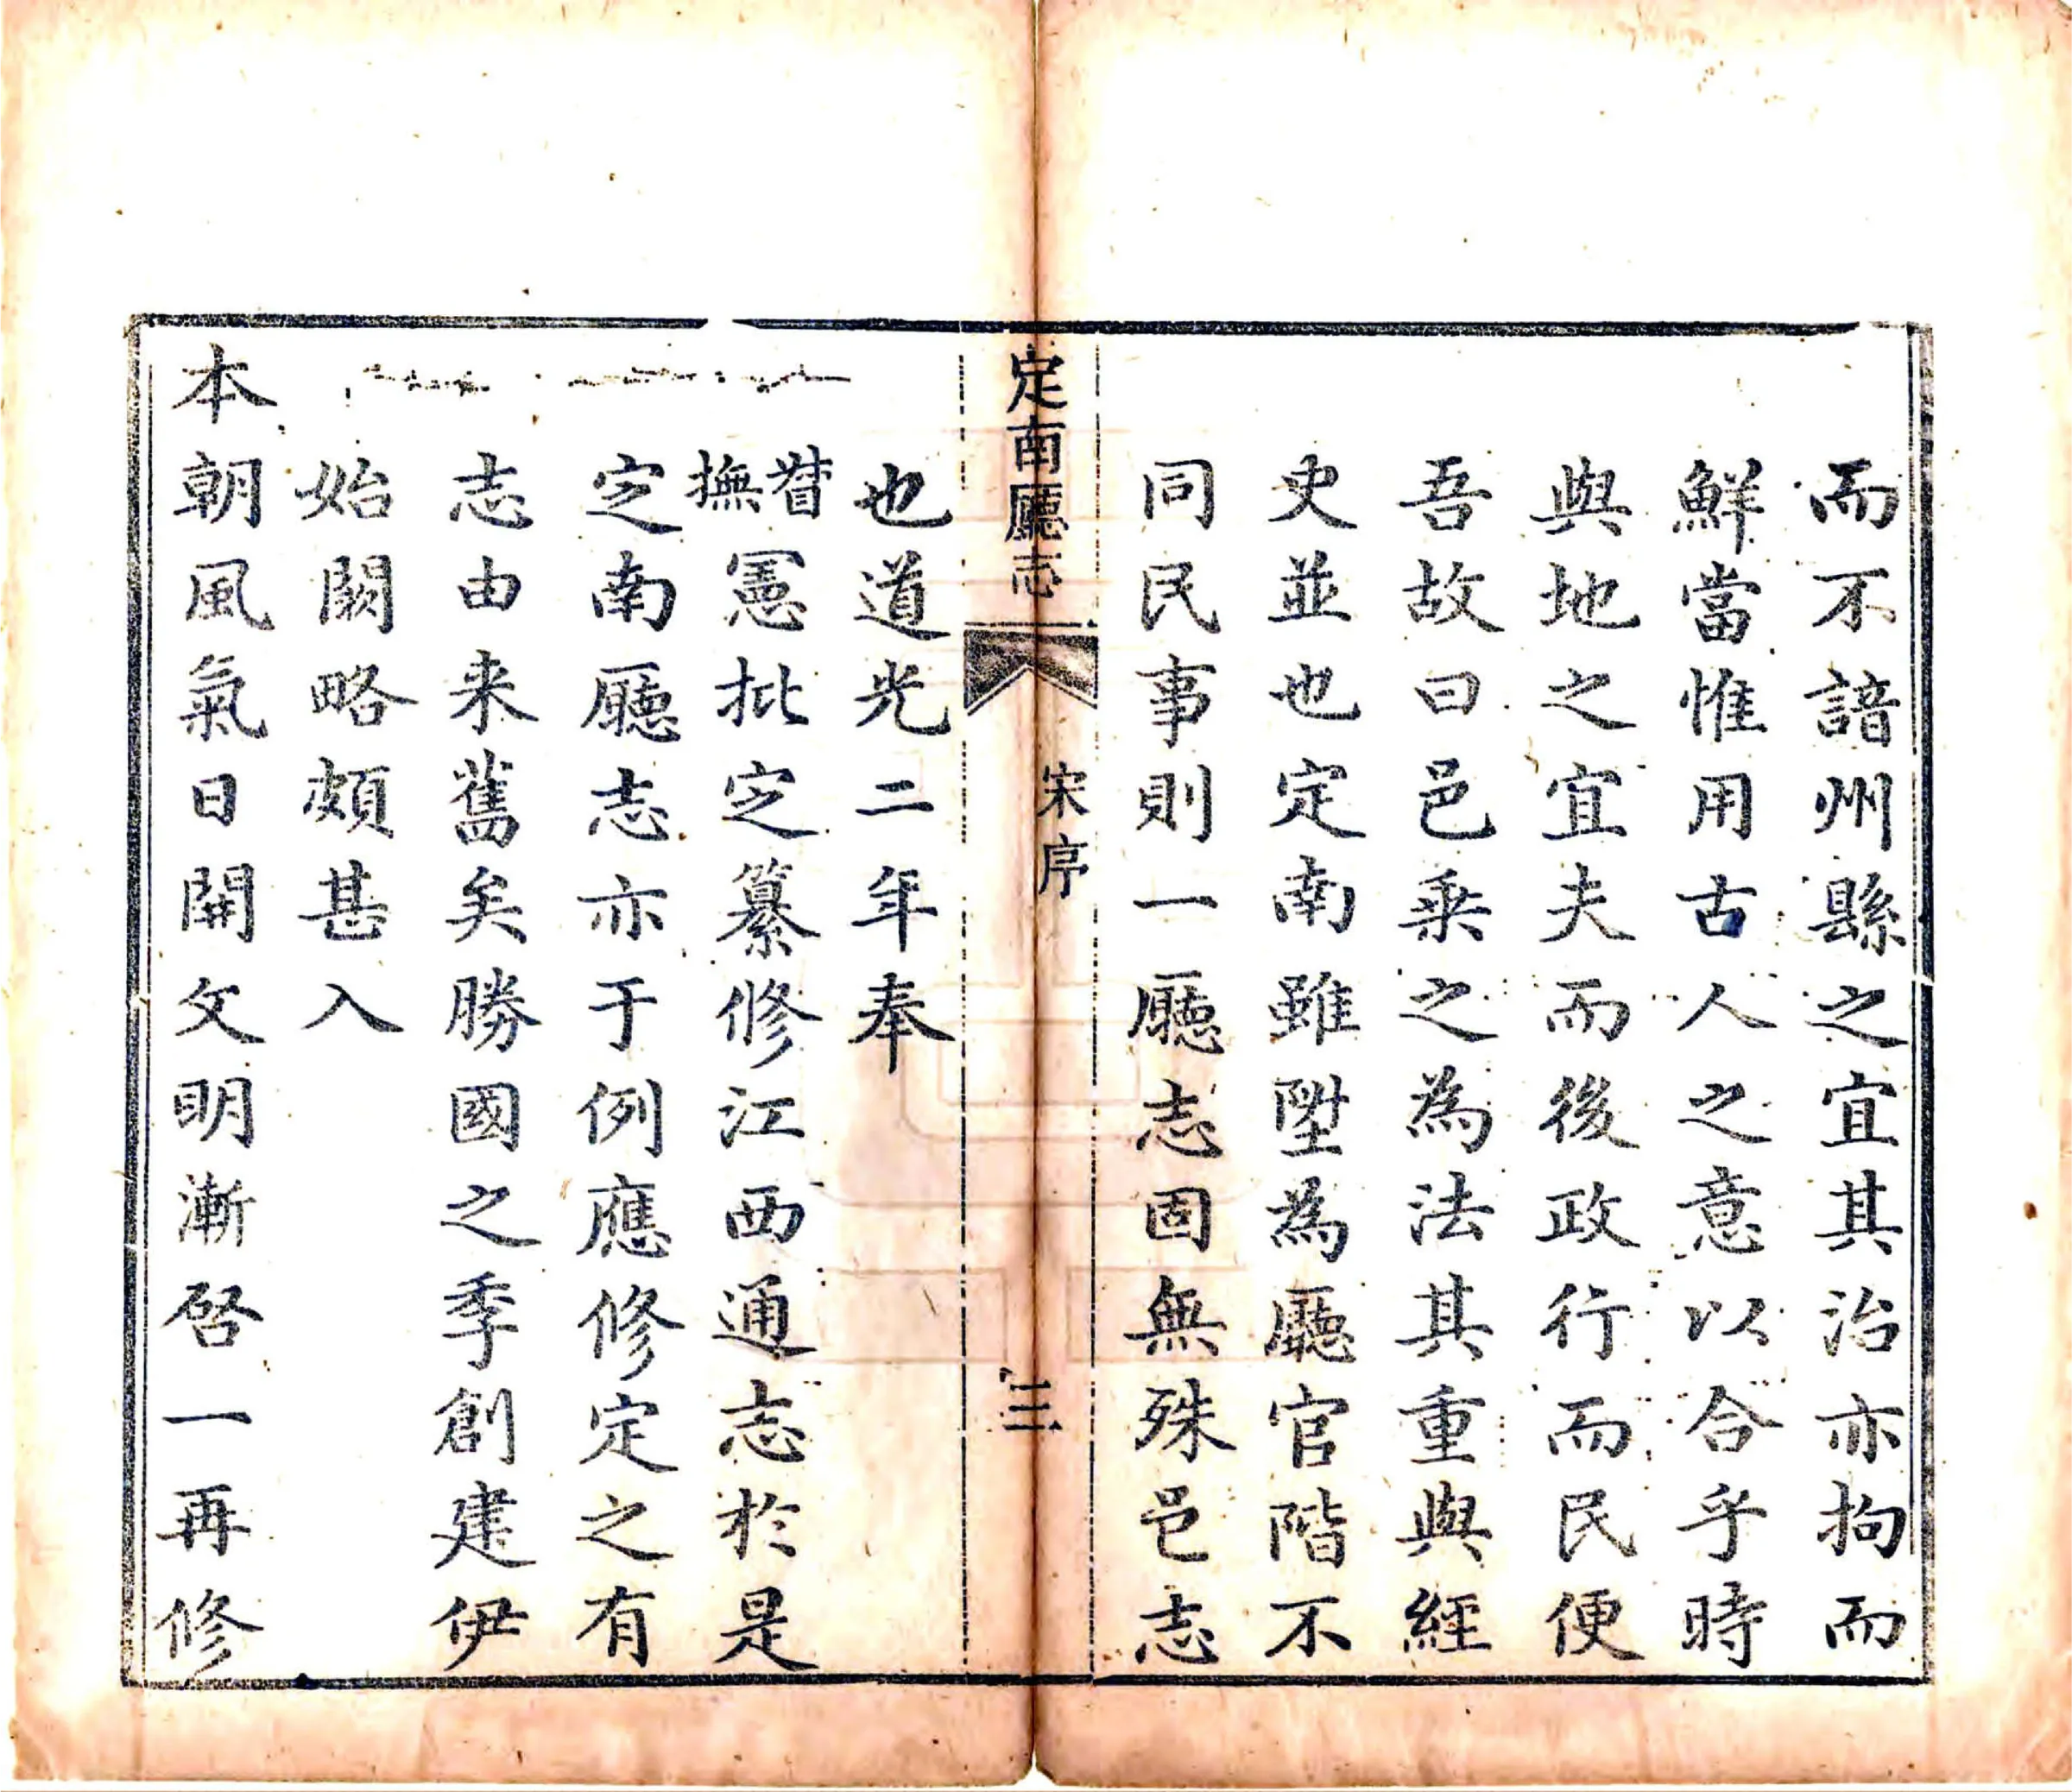 而不諳州縣之宜其治亦拘而
鮮當惟用古人之意以合乎時
與地之宜夫而後政行而民便
吾故曰邑乘之為法其重與經
史並也定南雖陞為廳官階不
同民事則一廳志固無殊邑志
定南廳志
宋序
三
也道光二年奉
督撫憲批定纂修江西通志於是
定南廳志亦于例應修定之有
志由来舊矣勝國之季創建伊
始闕略頗甚入
本朝風氣日開文明漸啓一再修